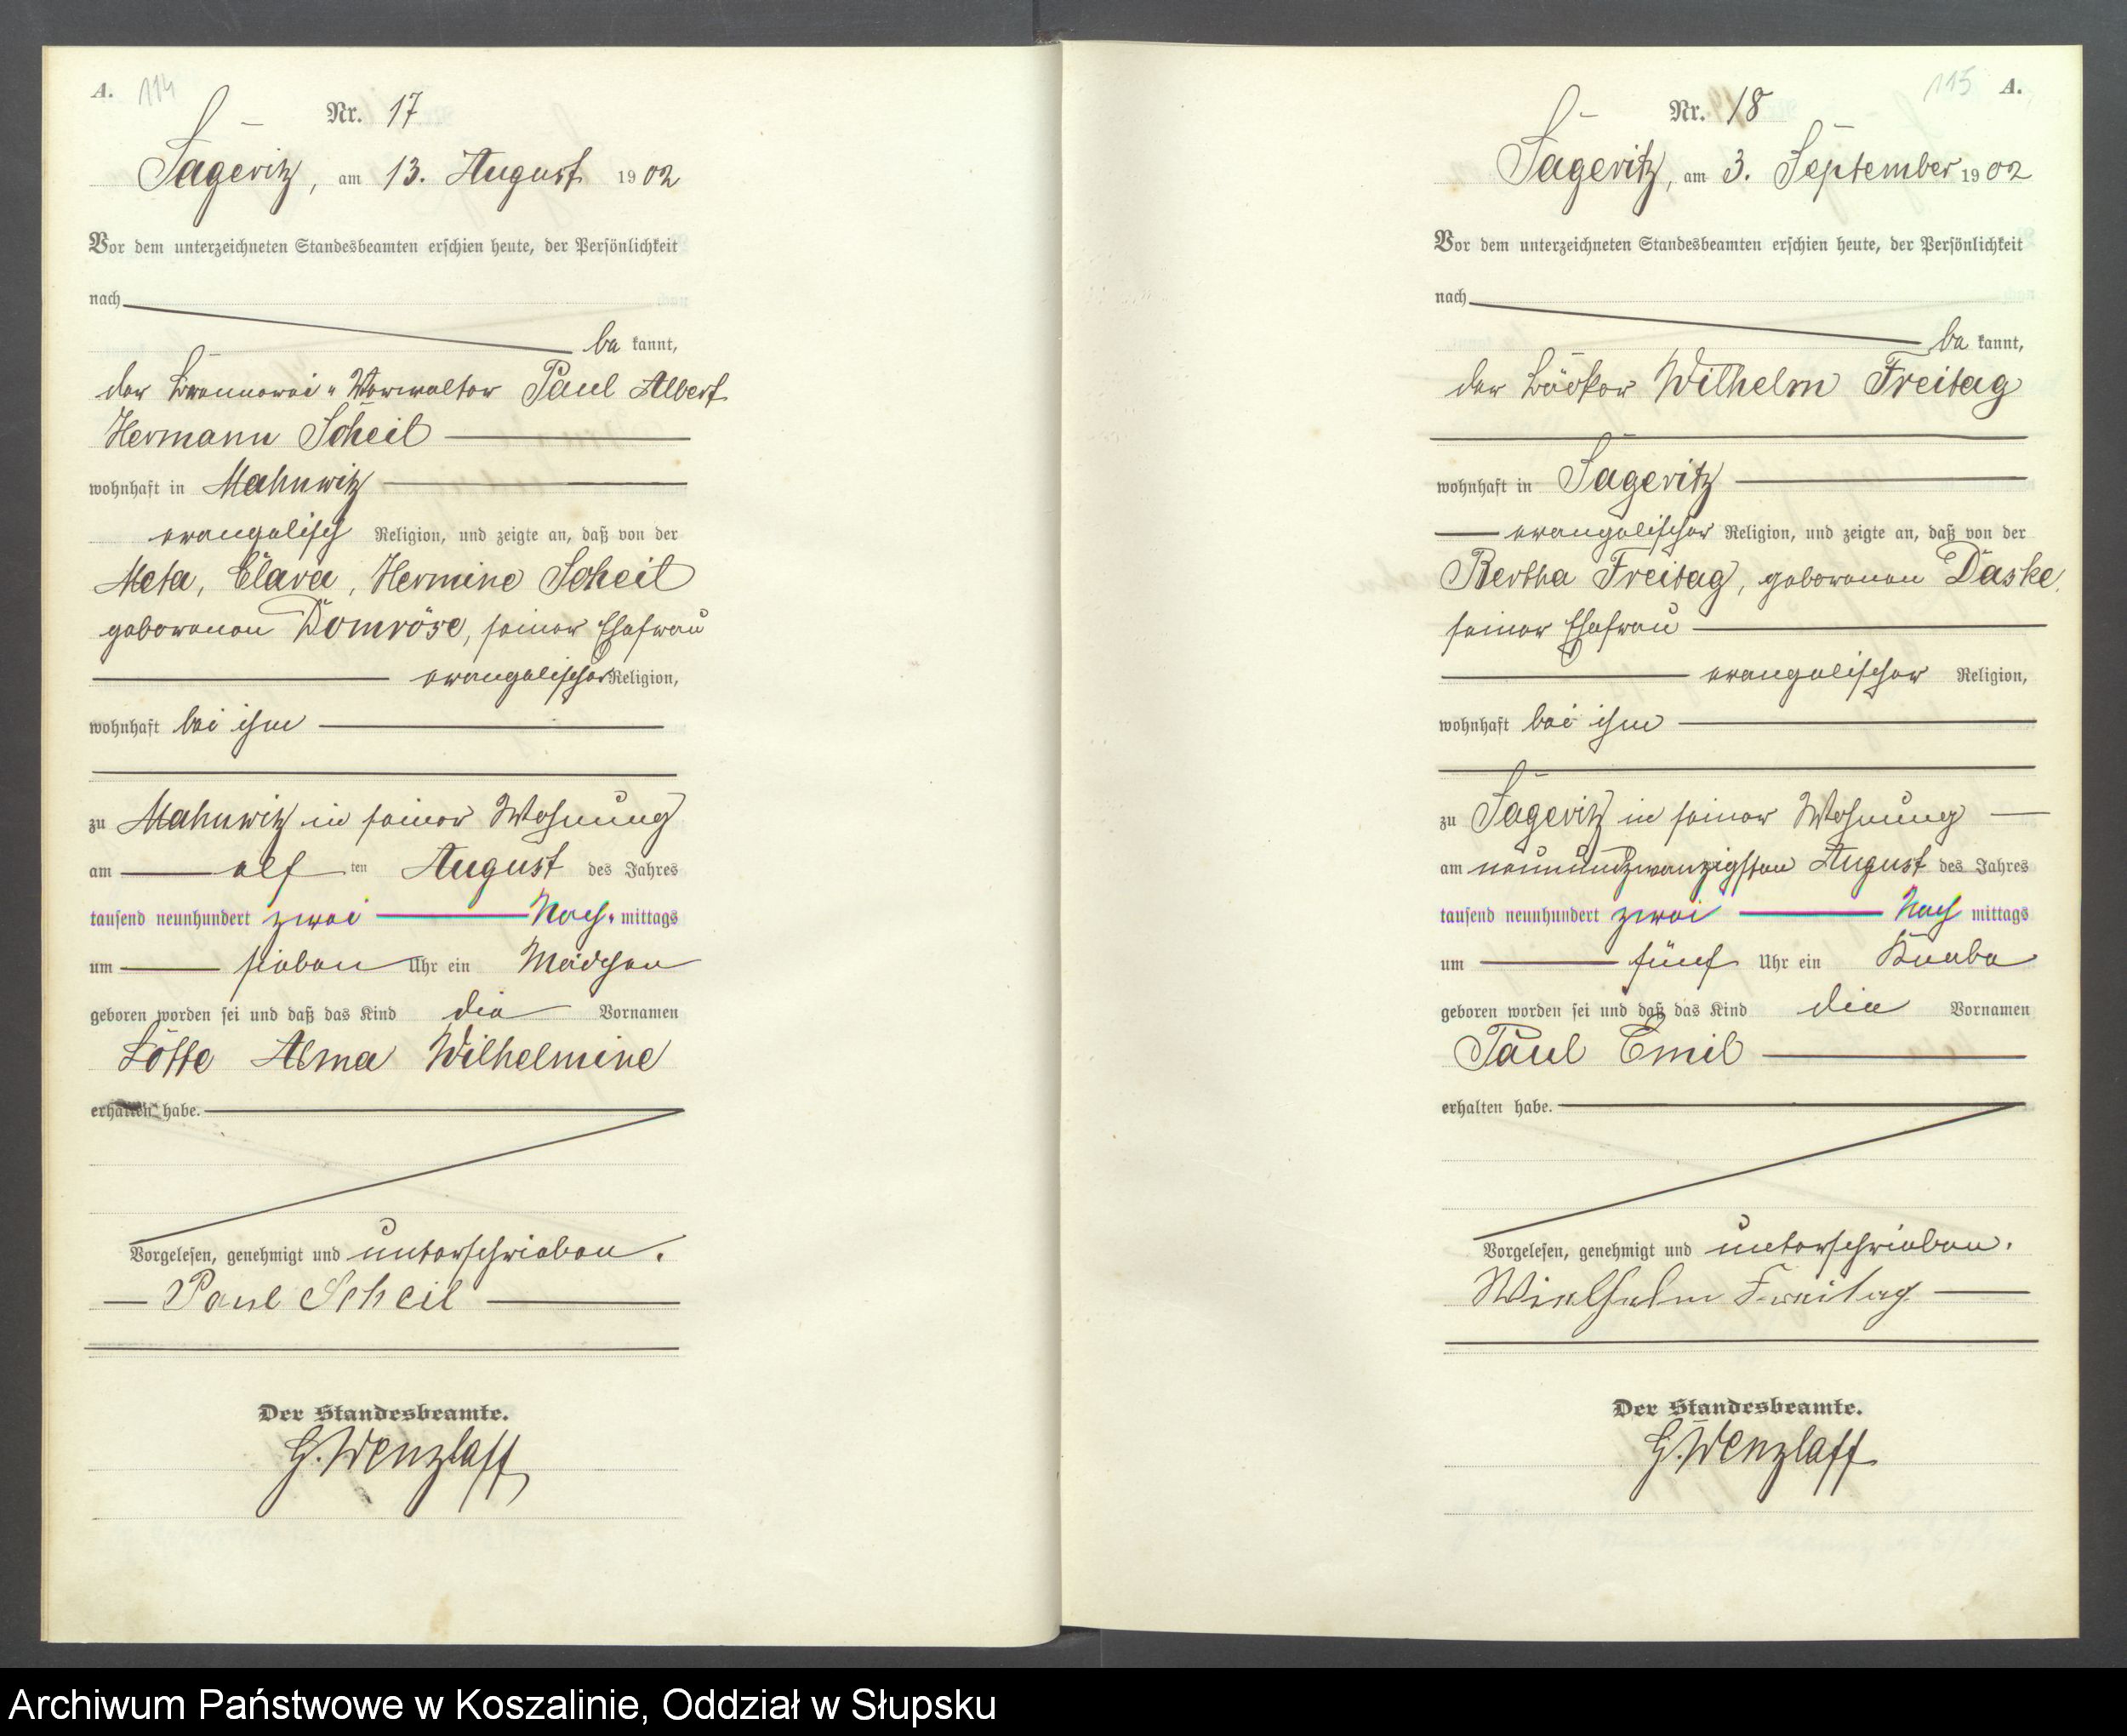 A. 114
Nr. 17
Sageritz, am 13. August 1902
Vor dem unterzeichneten Standesbeamten erschien heute, der Persönlichkeit
nach
be kannt,
der Brennerei-Verwalter Paul Albert
Hermann Scheil
wohnhaft in Mahnwitz
evangelisch Religion, und zeigte an, daß von der
Meta, Clara, Hermine Scheil
geborenen Domröse, seiner Ehefrau
evangelischer Religion,
wohnhaft bei ihm
zu Mahnwitz in seiner Wohnung
am elf ten August des Jahres
tausend neunhundert zwei Nach-mittags
um sieben Uhr ein Mädchen
geboren worden sei und daß das Kind die Vornamen
Lotte Alma Wilhelmine
erhalten habe.
Vorgelesen, genehmigt und unterschrieben.
Paul Scheil
Der Standesbeamte.
G. Wenzlaff
115 A.
Nr. 18
Sageritz, am 3. September 1902
Vor dem unterzeichneten Standesbeamten erschien heute, der Persönlichkeit
nach
be kannt,
der Bäcker Wilhelm Freitag
wohnhaft in Sageritz
evangelischer Religion, und zeigte an, daß von der
Bertha Freitag, geborenen Daske,
seiner Ehefrau
evangelischer Religion,
wohnhaft bei ihm
zu Sageritz in seiner Wohnung
am neunundzwanzigsten August des Jahres
tausend neunhundert zwei Nach mittags
um fünf Uhr ein Knabe
geboren worden sei und daß das Kind die Vornamen
Paul Emil
erhalten habe.
Vorgelesen, genehmigt und unterschrieben.
Wielhelm Freitag
Der Standesbeamte.
G. Wenzlaff
Archiwum Państwowe w Koszalinie, Oddział w Słupsku